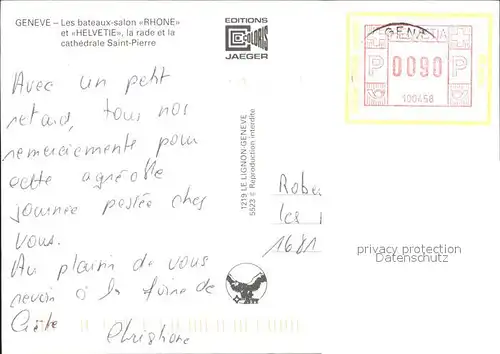 GENEVE – Les bateaux-salon «RHONE»
et «HELVETIE», la rade et la
cathédrale Saint-Pierre
EDITIONS
COLORIS
JAEGER
GENÈ
HELVETIA
P 0090 P
100458
Avec un petit
retard, tous nos
remerciements pour
cette agréable
journée passée chez
vous.
Au plaisir de vous
revoir à la foire de
Christiane
1219 LE LIGNON-GENEVE
5523 © Reproduction interdite
Rober
les
1681
privacy protection
Datenschutz